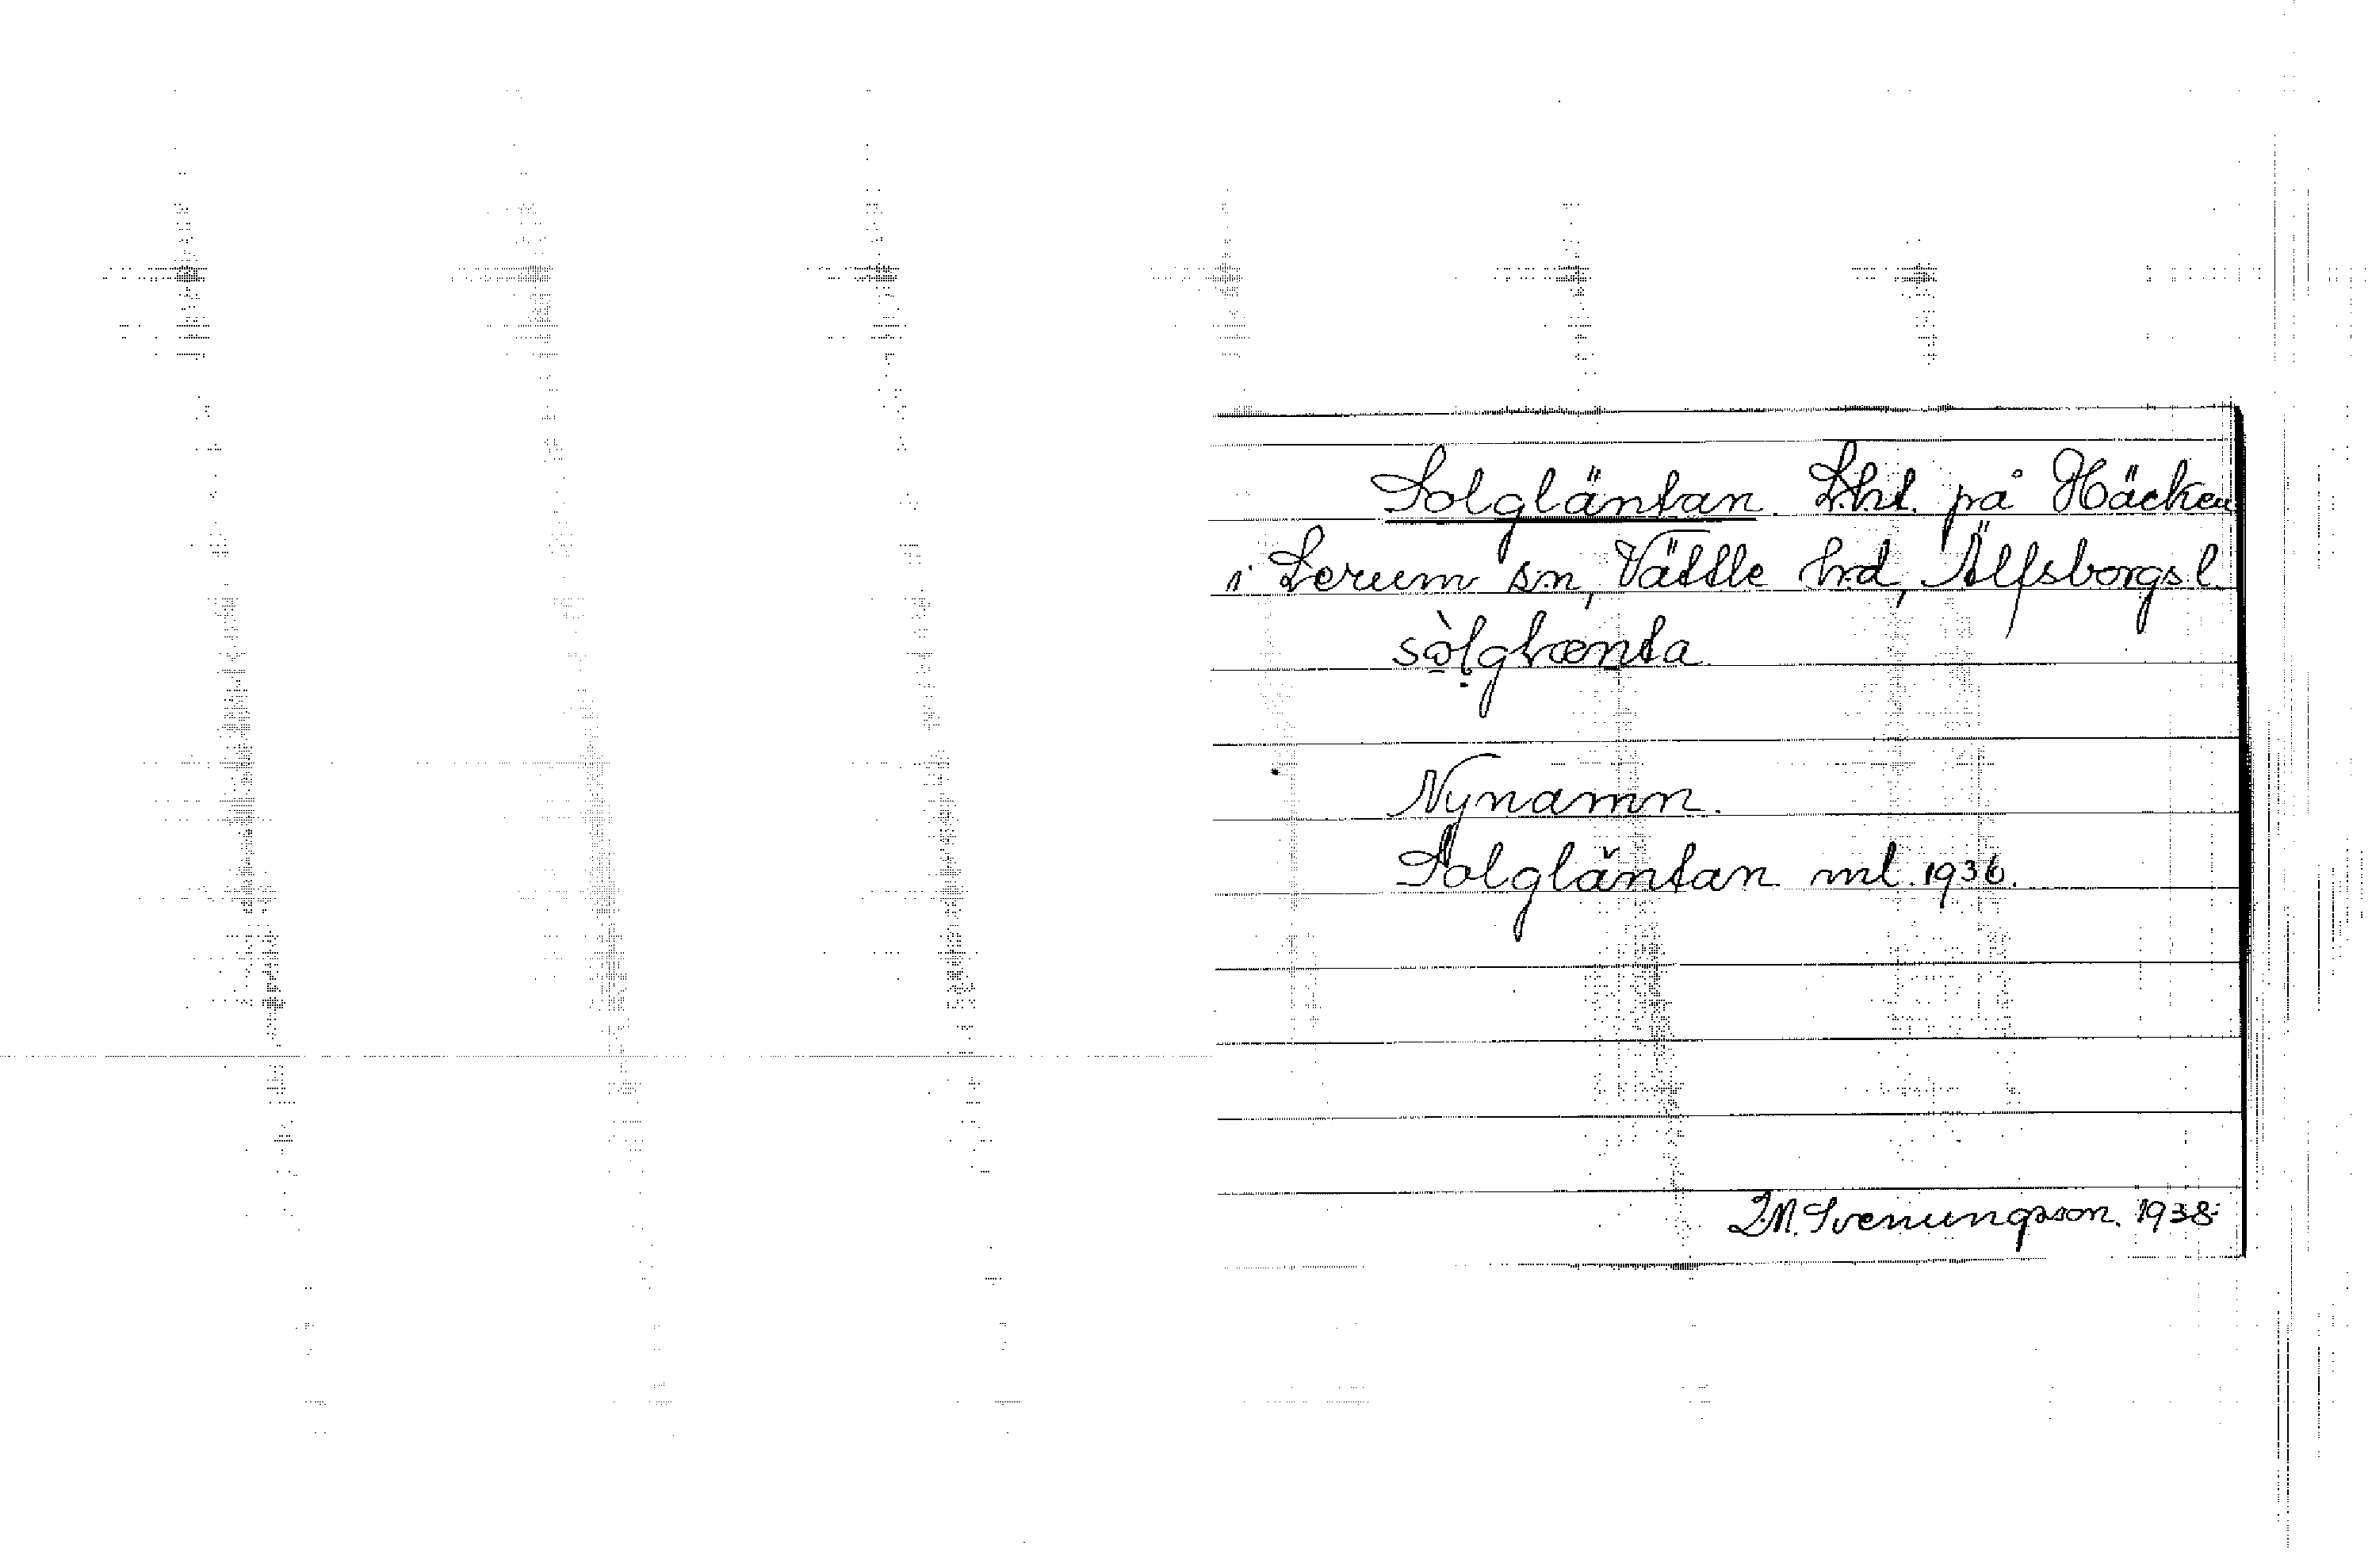 Solgläntan. Lht. på Häcken
i Lerum sn, Vättle hd, Älfsborgs l.
sòlglænta
Nynamn.
Solgläntan ml. 1936.
I.M. Svenungsson. 1938.